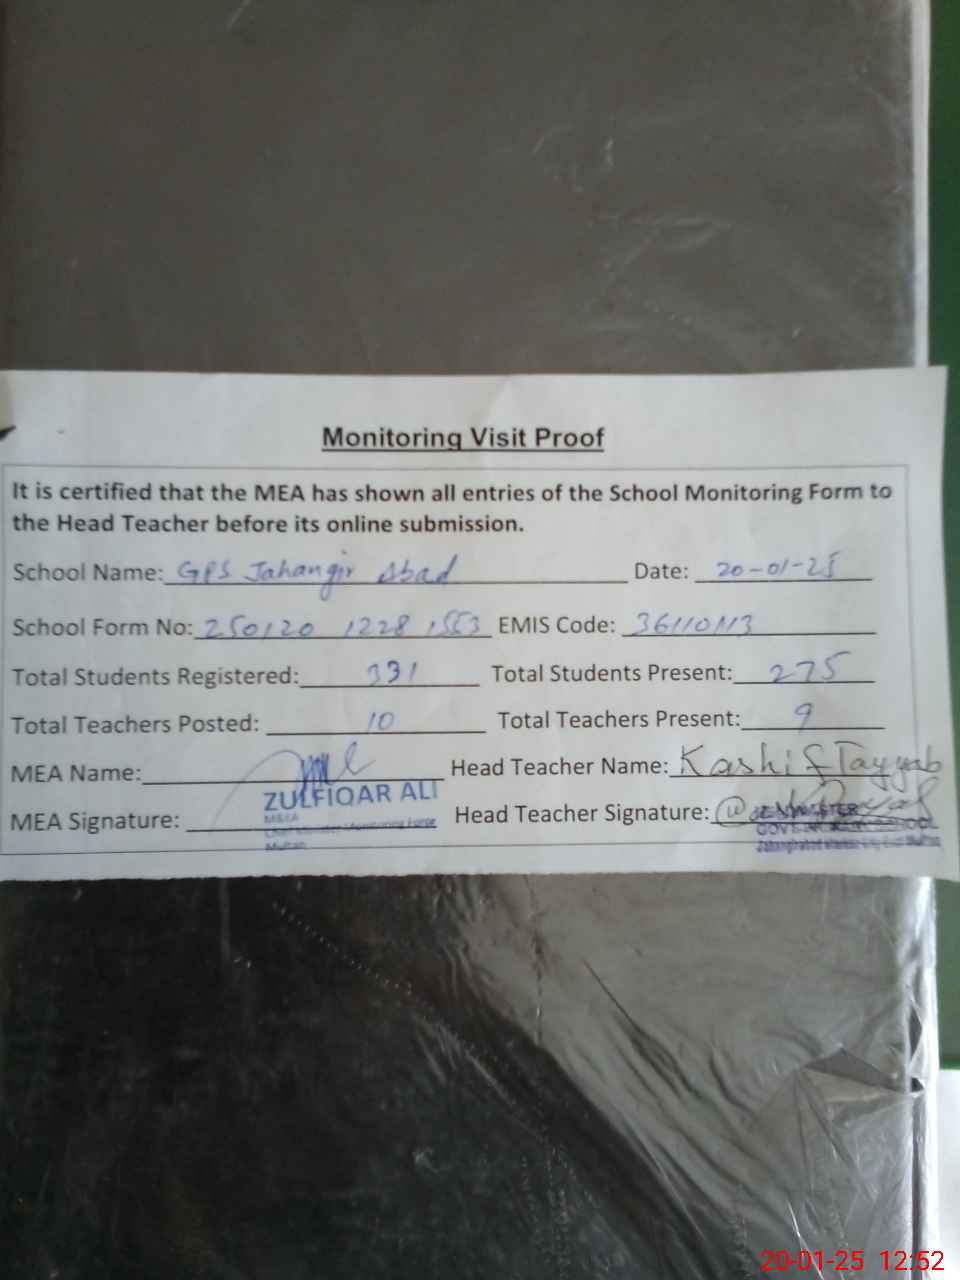 Monitoring Visit Proof
It is certified that the MEA has shown all entries of the School Monitoring Form to
the Head Teacher before its online submission.
School Name: GPS Jahangir Abad Date: 20-01-25
School Form No: 250120 1228 1553 EMIS Code: 36110113
Total Students Registered: 331 Total Students Present: 275
Total Teachers Posted: 10 Total Teachers Present: 9
MEA Name: Head Teacher Name: Kashif Tayyab
ZULFIQAR ALI
MEA Signature: Head Teacher Signature:
MEA
Chief Minister Monitoring Force
Multan
20-01-25 12:52